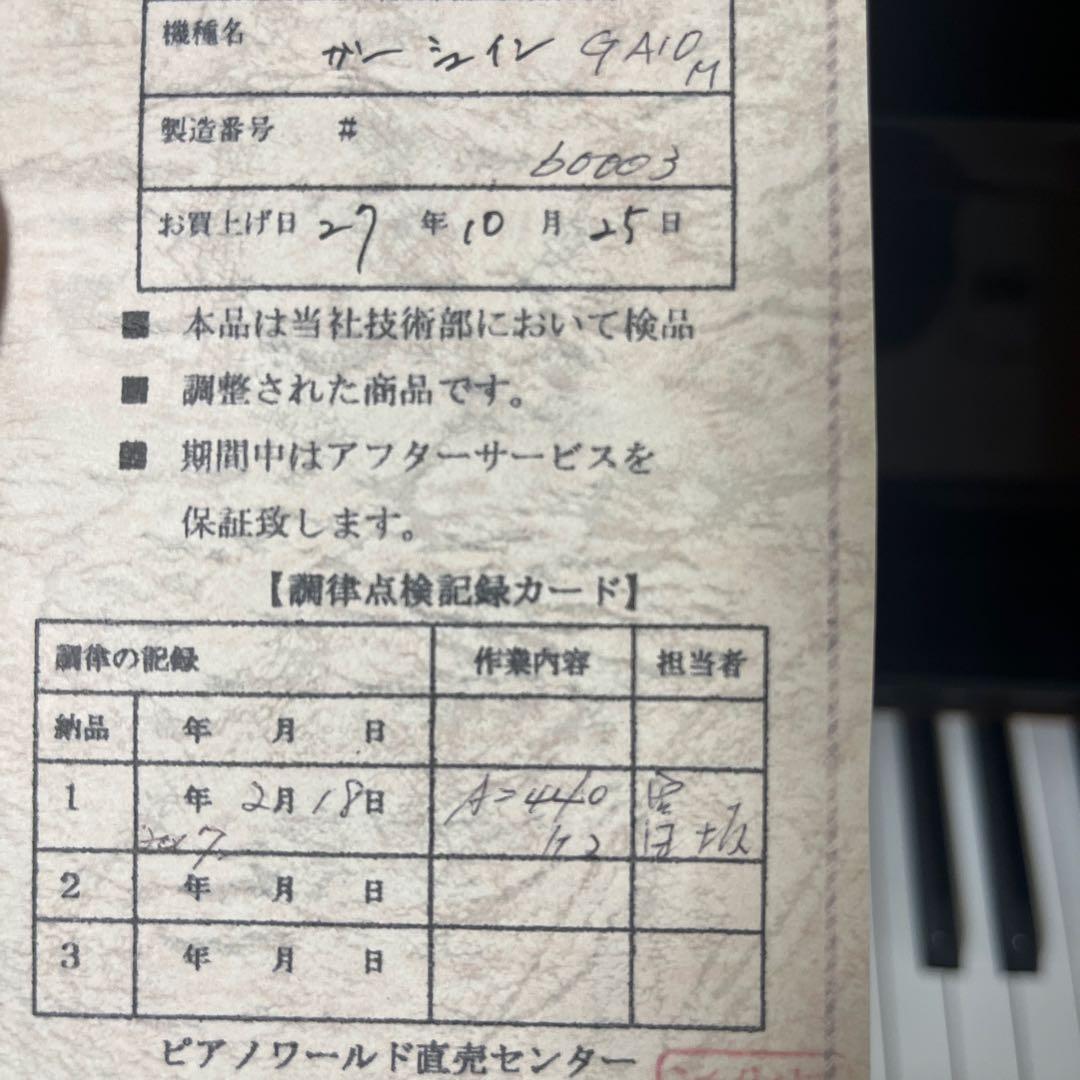 機種名 ガーシュイン GA10M
製造番号 # 60003
お買上げ日 27年10月25日
■ 本品は当社技術部において検品
■ 調整された商品です。
■ 期間中はアフターサービスを
保証致します。
【調律点検記録カード】
調律の記録 作業内容 担当者
納品 年 月 日
1 年 2月18日 A=440
Hz
2 年 月 日
3 年 月 日
ピアノワールド直売センター